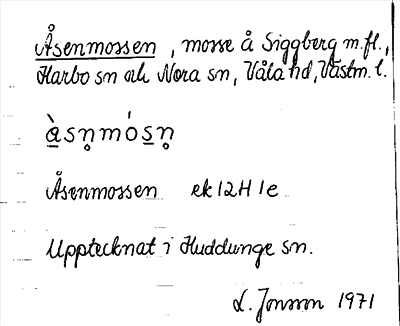 Åsenmossen, mosse å Siggberg m.fl.,
Harbo sn och Nora sn, Våla hd, Västm. l.
à̲sn̥mós̲n̥
Åsenmossen ek 12H 1e
Upptecknat i Huddunge sn.
L. Jonsson 1971